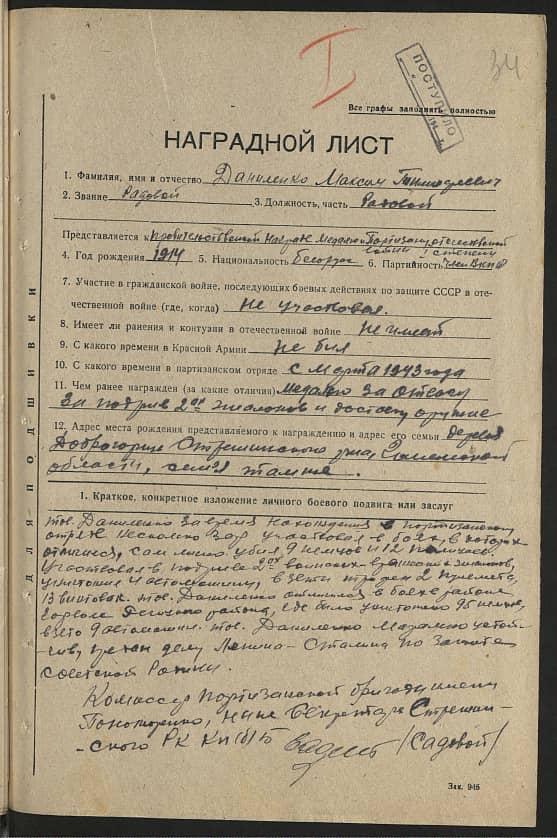 34
I
ПОСТУПИЛО
Все графы заполнять полностью
НАГРАДНОЙ ЛИСТ
1. Фамилия, имя и отчество Даниленко Максим Тимофеевич
2. Звание Рядовой 3. Должность, часть Рядовой
Представляется к правительственной награде медалью Партизану отечественной
войны I степени
4. Год рождения 1914 5. Национальность белорус 6. Партийность член ВКП(б)
7. Участие в гражданской войне, последующих боевых действиях по защите СССР в оте-
чественной войне (где, когда) Не участвовал.
8. Имеет ли ранения и контузии в отечественной войне Не имеет
9. С какого времени в Красной Армии Не был
10. С какого времени в партизанском отряде с Марта 1943 года
11. Чем ранее награжден (за какие отличия) Медалью За отвагу
За подрыв 2ух эшалонов и доставку оружие
12. Адрес места рождения представляемого к награждению и адрес его семьи деревня
Доброгоща Стрешинского р-на, Гомельской
области, семья тамже.
1. Краткое, конкретное изложение личного боевого подвига или заслуг
тов. Даниленко за время нахождения в партизанском
отряде несколько раз участвовал в боях, в которых
отличился, сам лично убил 9 немцев и 12 полицаев.
Участвовал в подрыве 2ух эшалонов,
уничтожил 1 автомашину, взяты 2 пулемета,
13 винтовок. тов. Даниленко отличился в бою в районе
района, где было уничтожено 95 немцев,
взято 9 автомашин. тов. Даниленко
предан делу Ленина-Сталина по защите
советской Родины.
Комиссар партизанской бригады имени
Пономаренко, ныне Секретарь Стрешин-
-ского РК КП(б)Б (Садовой)
ДЛЯ ПОДШИВКИ
Зак. 946